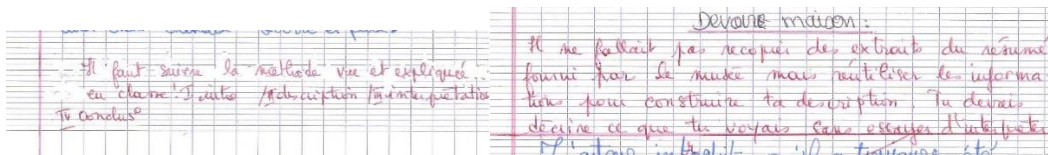 Il faut suivre la méthode vue et expliquée
en classe : I intro / II description / III interprétation
IV conclus°
Devoire maison :
Il ne fallait pas recopier des extraits du résumé
fourni par le musée mais réutiliser les informa
tions pour construire ta description. Tu devais
décrire ce que tu voyais sans essayer d'interpréter